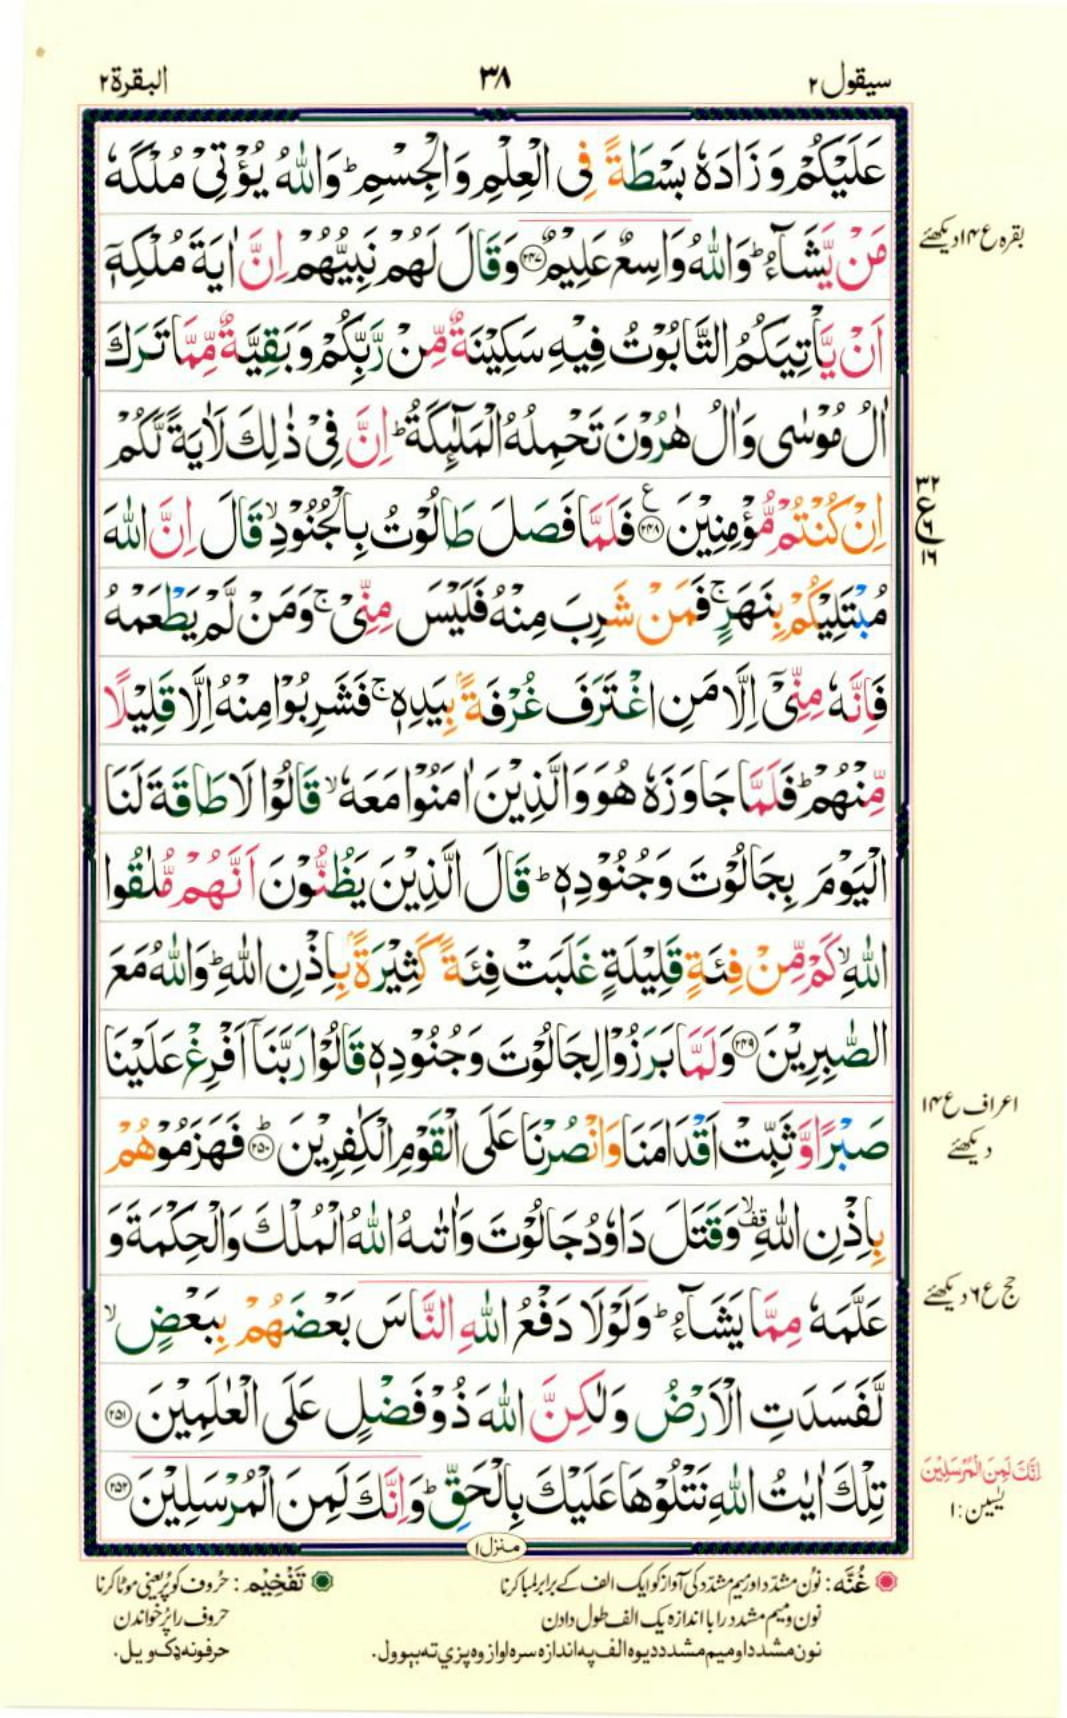 سیقول ٢
٣٨
البقرة ٢
عَلَيْكُمْ وَ زَادَهٗ بَسْطَةً فِی الْعِلْمِ وَ الْجِسْمِ ؕ وَ اللّٰهُ یُؤْتِیْ مُلْكَهٗ
مَنْ یَّشَآءُ ؕ وَ اللّٰهُ وَاسِعٌ عَلِیْمٌ ﴿۲۴۷﴾ وَ قَالَ لَهُمْ نَبِیُّهُمْ اِنَّ اٰیَةَ مُلْكِهٖۤ
بقرہ ع ۱۴ دیکھئے
اَنْ یَّاْتِیَكُمُ التَّابُوْتُ فِیْهِ سَكِیْنَةٌ مِّنْ رَّبِّكُمْ وَ بَقِیَّةٌ مِّمَّا تَرَكَ
اٰلُ مُوْسٰی وَ اٰلُ هٰرُوْنَ تَحْمِلُهُ الْمَلٰٓئِكَةُ ؕ اِنَّ فِیْ ذٰلِكَ لَاٰیَةً لَّكُمْ
اِنْ كُنْتُمْ مُّؤْمِنِیْنَ ﴿۲۴۸﴾ ع فَلَمَّا فَصَلَ طَالُوْتُ بِالْجُنُوْدِ ۙ قَالَ اِنَّ اللّٰهَ
٣٢
ع
٦
١٦
مُبْتَلِیْكُمْ بِنَهَرٍ ۚ فَمَنْ شَرِبَ مِنْهُ فَلَیْسَ مِنِّیْ ۚ وَ مَنْ لَّمْ یَطْعَمْهُ
فَاِنَّهٗ مِنِّیْۤ اِلَّا مَنِ اغْتَرَفَ غُرْفَةًۢ بِیَدِهٖ ۚ فَشَرِبُوْا مِنْهُ اِلَّا قَلِیْلًا
مِّنْهُمْ ؕ فَلَمَّا جَاوَزَهٗ هُوَ وَ الَّذِیْنَ اٰمَنُوْا مَعَهٗ ۙ قَالُوْا لَا طَاقَةَ لَنَا
الْیَوْمَ بِجَالُوْتَ وَ جُنُوْدِهٖ ؕ قَالَ الَّذِیْنَ یَظُنُّوْنَ اَنَّهُمْ مُّلٰقُوا
اللّٰهِ ۙ كَمْ مِّنْ فِئَةٍ قَلِیْلَةٍ غَلَبَتْ فِئَةً كَثِیْرَةًۢ بِاِذْنِ اللّٰهِ ؕ وَ اللّٰهُ مَعَ
الصّٰبِرِیْنَ ﴿۲۴۹﴾ وَ لَمَّا بَرَزُوْا لِجَالُوْتَ وَ جُنُوْدِهٖ قَالُوْا رَبَّنَاۤ اَفْرِغْ عَلَیْنَا
صَبْرًا وَّ ثَبِّتْ اَقْدَامَنَا وَ انْصُرْنَا عَلَی الْقَوْمِ الْكٰفِرِیْنَ ﴿۲۵۰﴾ ؕ فَهَزَمُوْهُمْ
اعراف ع ۱۴
دیکھئے
بِاِذْنِ اللّٰهِ ۙ۫ وَ قَتَلَ دَاوٗدُ جَالُوْتَ وَ اٰتٰىهُ اللّٰهُ الْمُلْكَ وَ الْحِكْمَةَ وَ
عَلَّمَهٗ مِمَّا یَشَآءُ ؕ وَ لَوْ لَا دَفْعُ اللّٰهِ النَّاسَ بَعْضَهُمْ بِبَعْضٍ ۙ
حج ع ۶ دیکھئے
لَّفَسَدَتِ الْاَرْضُ وَ لٰكِنَّ اللّٰهَ ذُوْ فَضْلٍ عَلَی الْعٰلَمِیْنَ ﴿۲۵۱﴾
تِلْكَ اٰیٰتُ اللّٰهِ نَتْلُوْهَا عَلَیْكَ بِالْحَقِّ ؕ وَ اِنَّكَ لَمِنَ الْمُرْسَلِیْنَ ﴿۲۵۲﴾
اِنَّكَ لَمِنَ الْمُرْسَلِیْنَ
یٰسین : ۱
منزل ۱
غُنَّه : نون مشدّد اور میم مشدّد کی آواز کو ایک الف کے برابر لمبا کرنا
نون و میم مشدد را با اندازه یک الف طول دادن
نون مشدد او میم مشدد دیوه الف په اندازه سره اواز وه پزي ته بېوول.
تَفْخِیْم : حُروف کو پُر یعنی موٹا کرنا
حروف را پُر خواندن
حرفونه ډک ویل.